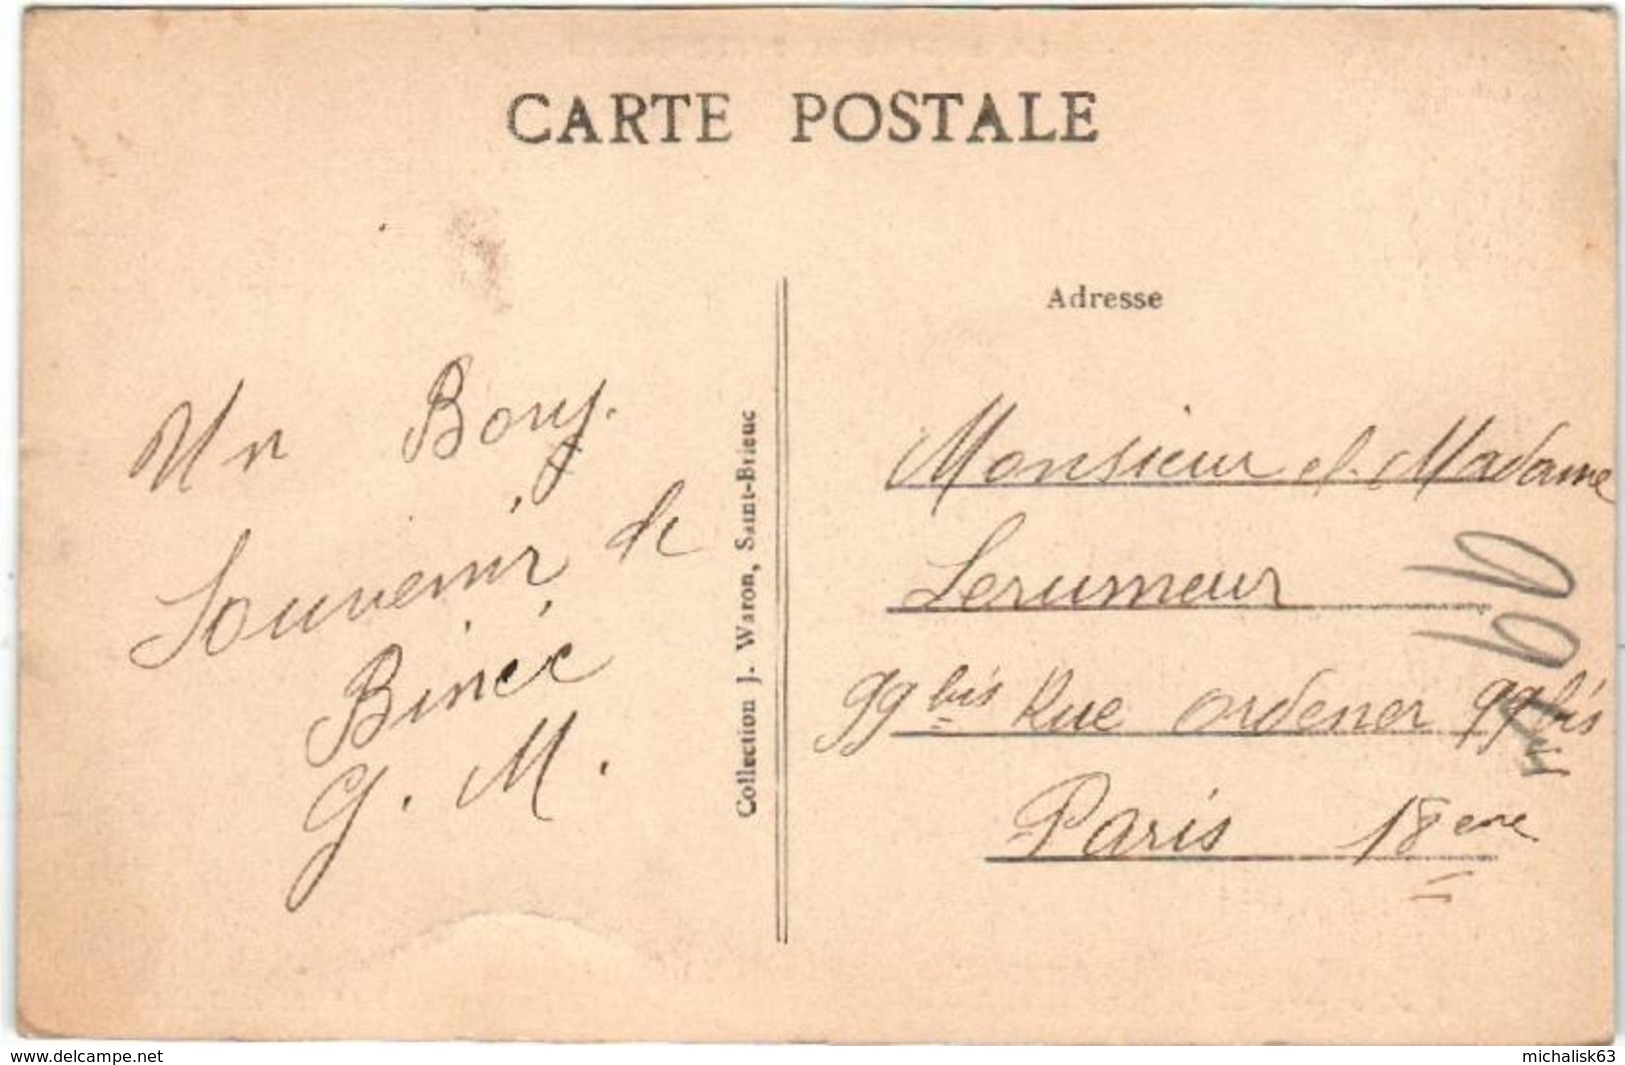 CARTE POSTALE
Un Bonj.
Souvenir de
Binic
G. M.
Collection J. Waron, Saint-Brieuc
Adresse
Monsieur et Madame
Lerumeur
99 bis Rue Ordener 99 bis
Paris 18 eme
www.delcampe.net
michalisk63